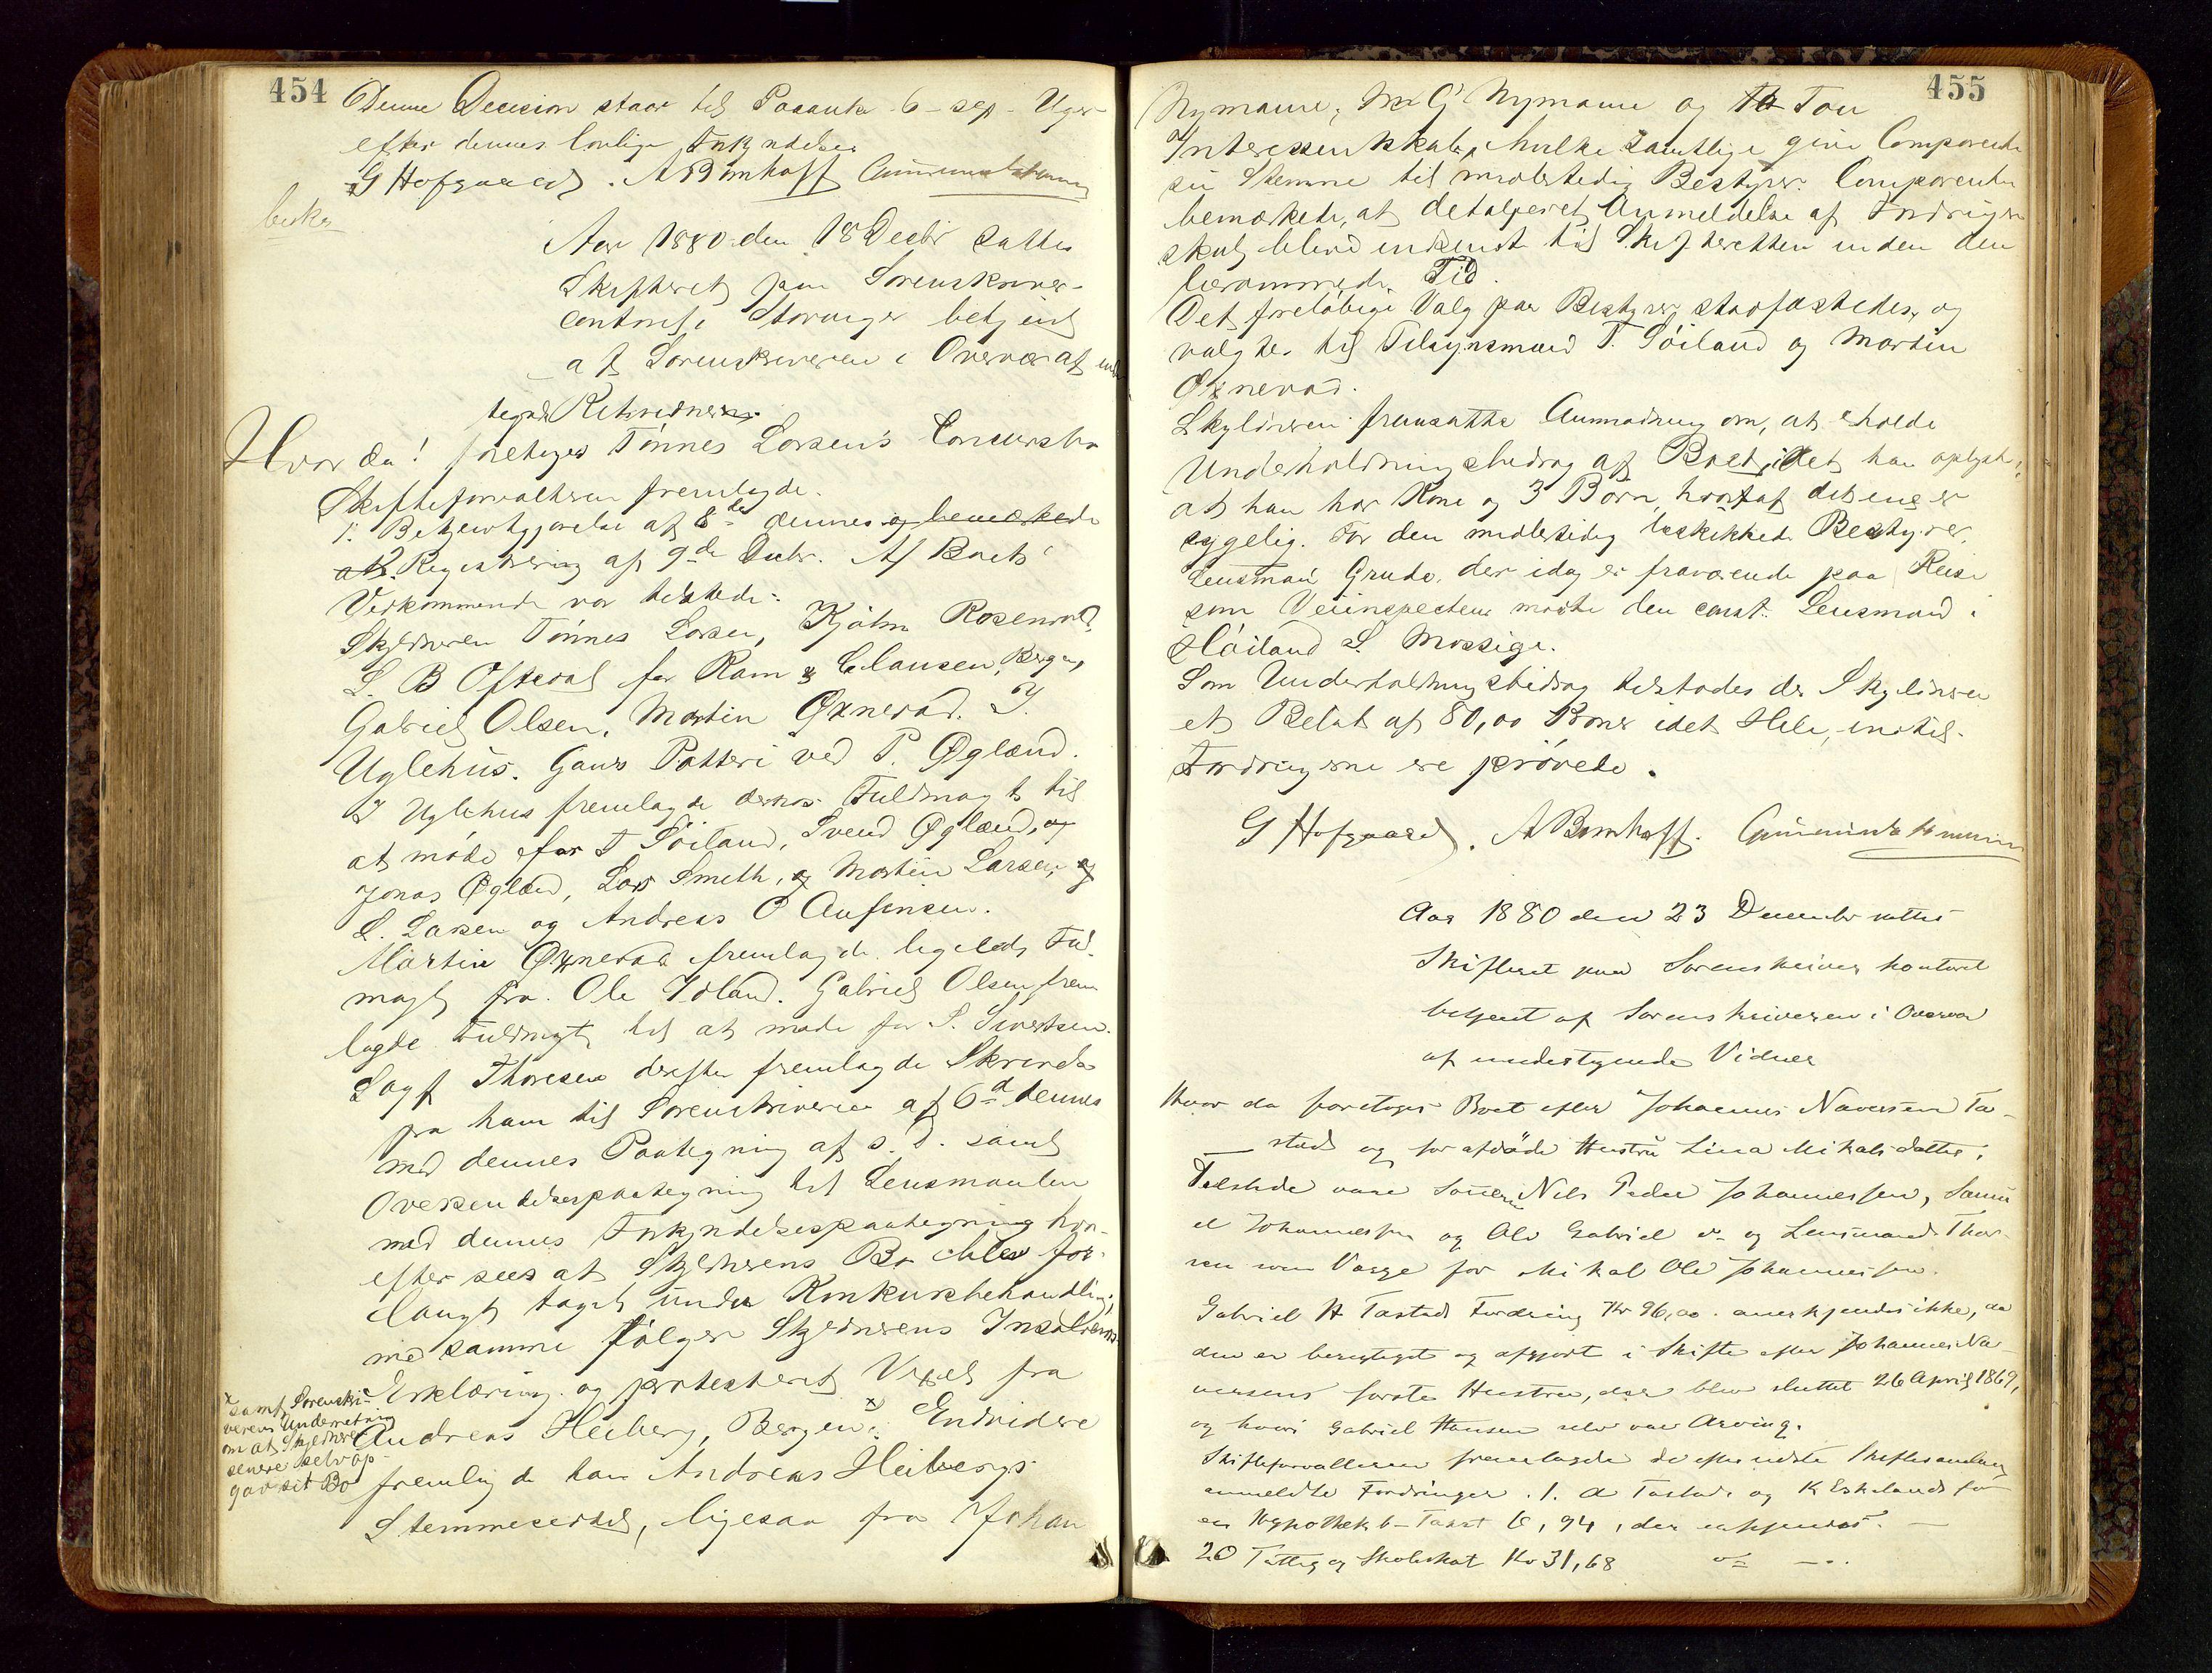 454
Denne Decision staar til Paaanke 6 – sex – Uger
efter dennes lovlige Forkyndelse
G Hofgaard. A Bomhoff
beskr
Aar 1880 den 18 Decbr sattes
Skifteret paa Sorenskriver-
contoret i Stavanger betjent
af Sorenskriveren i Overvær af und
tegnede Retsvidner.
Hvor da! foretoges Tønnes Larsen's Concursbo
Skifteforvalteren fremlagde.
1. Bekjendtgjørelse af 8de dennes og bemærkede
at 2. Registrering af 9de Decbr. Af Boets
Vedkommende var tilstede:
Skyldneren Tønnes Larsen, Kjøbm Rosenvold,
L. B Oftedal for Ram & Clausen, Bergen,
Gabriel Olsen, Martin Øxnevad. T.
Uglehus. Gans Potteri ved P. Øglænd.
T Uglehus fremlagde derhos Fuldmagt til
at møde for T Söiland, Svend Øglænd, og
Jonas Øglænd, Lars Smeth, og Martin Larsen, og
L. Larsen og Andreas O Aufinsen.
Martin Øxnevad fremlagde ligeleds Fuld-
magt fra Ole Idland. Gabriel Olsen frem
lagde Fuldmagt til at møde for S. Sivertsen.
Sagf Thoresen derefter fremlagde Skrivelse
fra ham til Sorenskriveren af 6d dennes
med dennes Paategning af s. d. samt
Oversendelsespaategning til Lensmanden
med dennes Forkyndelsespaategning hvor-
efter sees at Skyldnerens Bo blev for-
langt taget under Konkursbehandling;
med samme følger Skyldnerens Insolvens
Erklæring og protesteret Vexel fra
Andreas Heiberg, Bergen x. Endvidere
x samt Sorenskri-
verens Underretning
om at Skyldneren
senere selv op-
gav sit Bo
fremlagde han Andreas Heibergs
Stemmeseddel, ligesaa fra Johan
455
Nymanne, M G Nymanne og Tou
Interessentskab, hvilke samtlige give Comparenten
sin Stemme til midlertidig Bestyrer. Comparenten
bemærkede, at detaljeret Anmeldelse af Fordringen
skal blive indsendt til Skifteretten inden den
berammede Tid.
Det foreløbige Valg paa Bestyrer stadfæstedes, og
valgtes til Tilsynsmænd T. Söiland og Martin
Øxnevad.
Skyldneren fremsatte Anmodning om, at erholde
Underholdningsbidrag af Boet, idet han oplyste,
at han har Kone og 3 Børn, hvoraf det ene er
sygelig. For den midlertidig beskikkede Bestyrer,
Lensmand Grude, der idag er fraværende paa Reise
som Veiinspecteur mødte den const. Lensmand i
Høiland S. Mossige.
Som Underholdningsbidrag tilstodes der Skyldneren
et Beløb af 80,00 Kroner idet Hele, indtil
Fordringerne ere prøvede.
G Hofgaard. A Bomhoff.
Aar 1880 den 23 December sattes
Skifteret paa Sorenskriver kontoret
betjent af Sorenskriveren i Overvær
af undertegnede Vidner
Hvor da foretoges Boet efter Johannes Naversen Ta-
stad og før afdøde Hustru Lina Mikalsdatter;
Tilstede vare Sønnen Nils Peder Johannessen, Samu
el Johannessen og Ole Gabriel do og Lensmand Thor-
sen som Værge for Mikal Ole Johannessen.
Gabriel H Tastads Fordring Kr 96,00. anerkjendes ikke, da
den er berigtiget og afgjort i Skifte efter Johannes Na-
versens første Hustru, der blev sluttet 26 April 1869,
og hvori Gabriel Hansen selv var Arving.
Skifteforvalteren fremlagde de efter sidste Skiftesamling
anmeldte Fordringer. 1. A Tastads og K Eskelands for
en Hypothek b– Taxt 6, 94, der erkjendes. —
20 Fattig og Skoleskat Kr 31,68 do — .